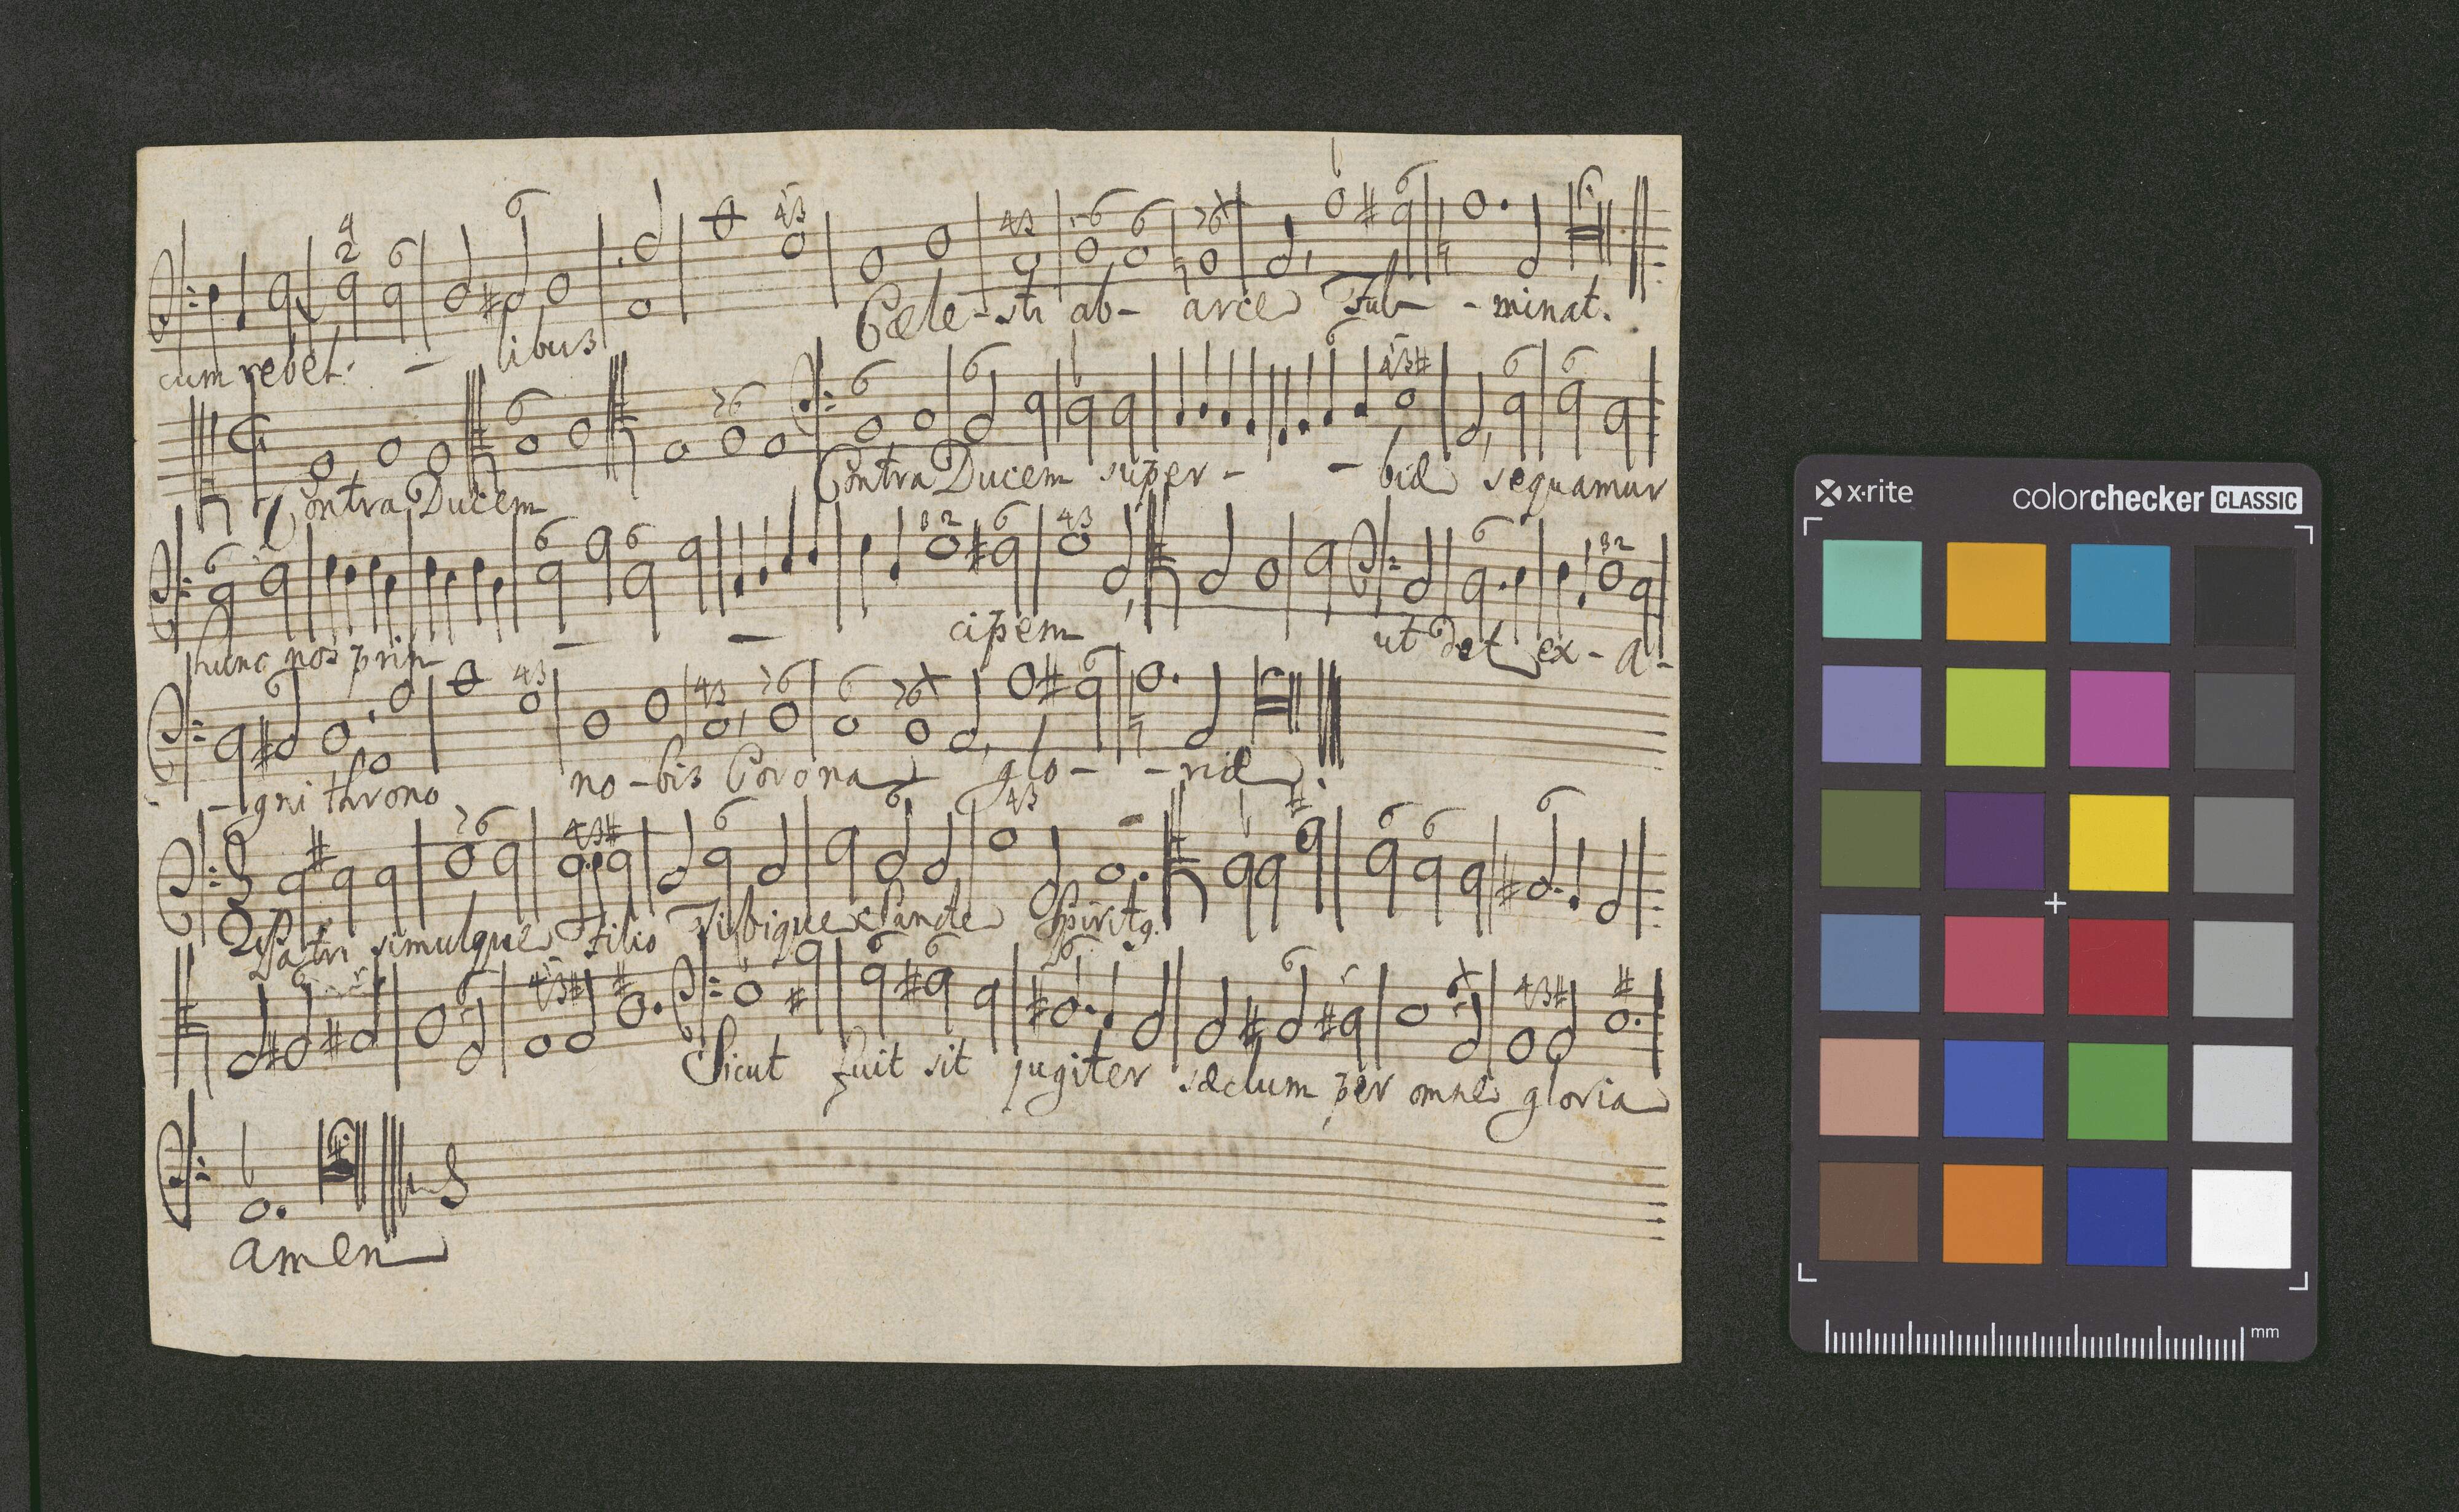 cum rebel - libus Cæle-sti ab- arce Ful- -minat.
Contra Ducem Contra Ducem super- - biæ sequamur
hunc nos prin - - cipem ut det ex- A-
-gni throno no-bis Corona glo- -riæ
Patri simulque Filio Tibique Sancte Spiritq.
Sicut fuit sit jugiter sæclum per omne gloria
amen
x-rite
colorchecker CLASSIC
mm